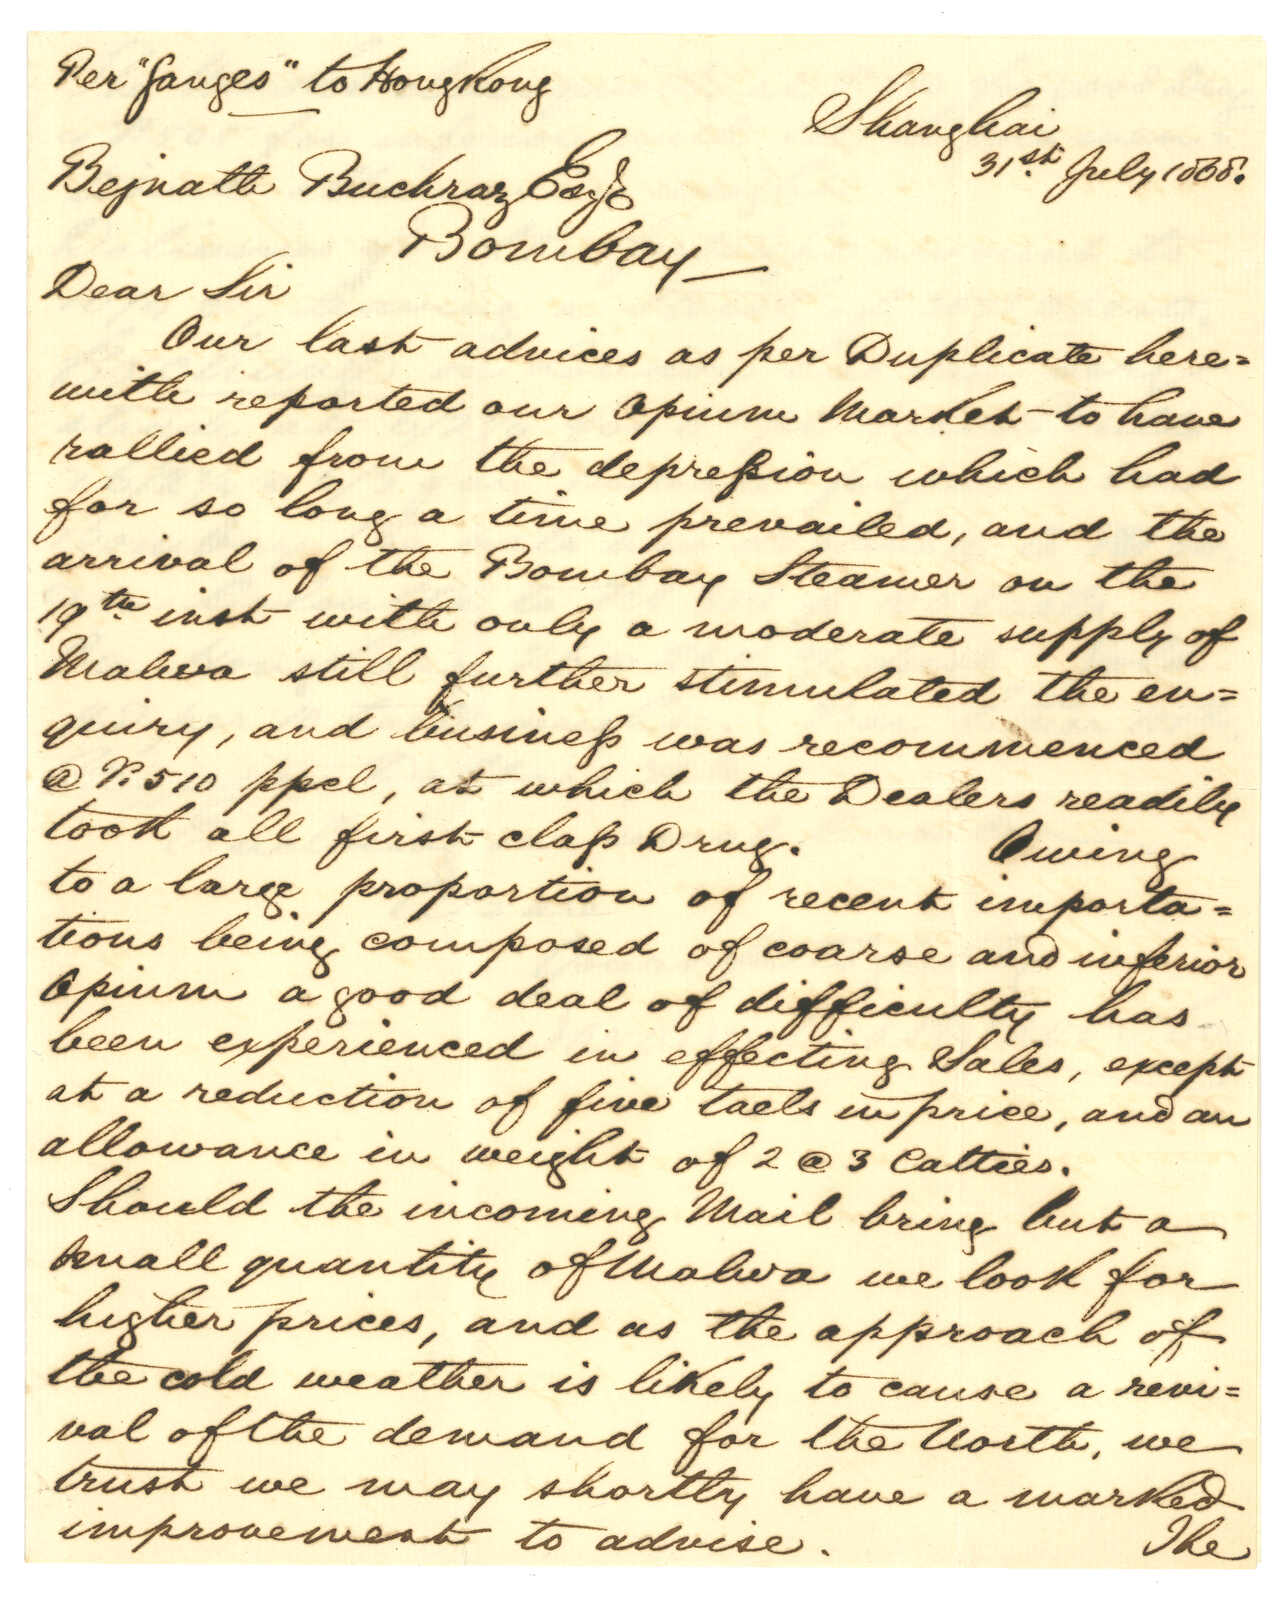 Per "Ganges" to Hongkong
Shanghai
31st July 1868.
Bejnath Buckraz Esqr
Bombay
Dear Sir
Our last advices as per Duplicate here=
with reported our Opium Market to have
rallied from the depression which had
for so long a time prevailed, and the
arrival of the Bombay Steamer on the
19th inst with only a moderate supply of
Malwa still further stimulated the en=
quiry, and business was recommenced
@ 510 ppcl, at which the Dealers readily
took all first class Drug. Owing
to a large proportion of recent importa=
tions being composed of coarse and inferior
Opium a good deal of difficulty has
been experienced in effecting Sales, except
at a reduction of five taels in price, and an
allowance in weight of 2 @ 3 Catties.
Should the incoming Mail bring but a
small quantity of Malwa we look for
higher prices, and as the approach of
the cold weather is likely to cause a revi=
val of the demand for the North, we
trust we may shortly have a marked
improvement to advise.
The